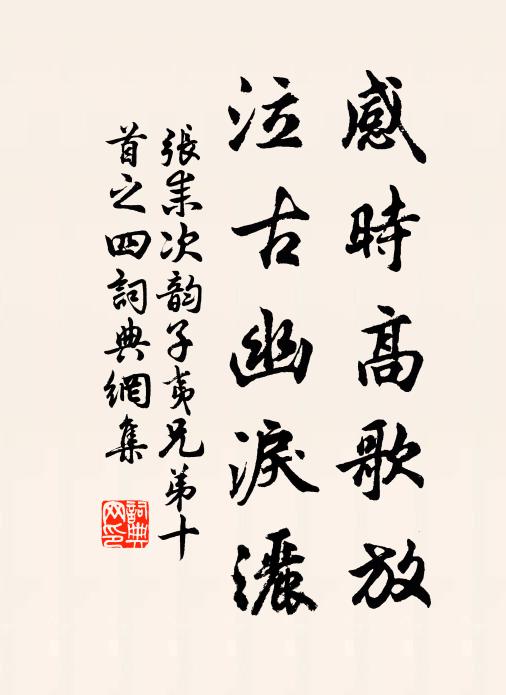 感時高歌放
泣古幽淚灑
張耒次韵子夷兄弟十
首之四詞典網集
詞典网印